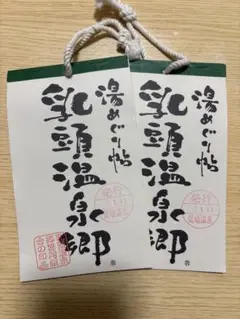 湯めぐり帖
乳頭温泉郷
湯めぐり帖
乳頭温泉郷